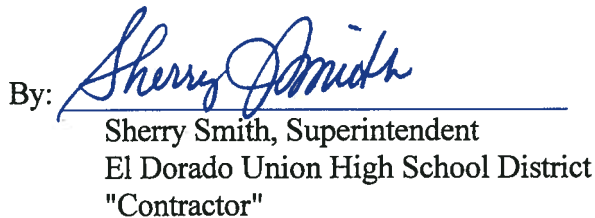 By: Sherry J Smith
Sherry Smith, Superintendent
El Dorado Union High School District
"Contractor"